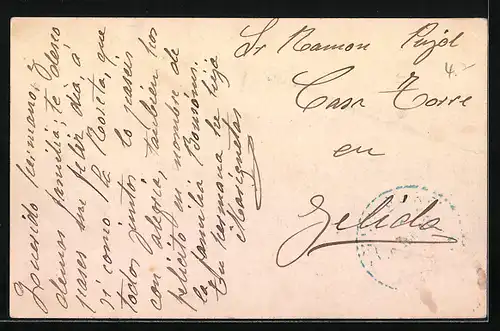 Querido hermano; y
demas familia; te deseo
pases un feliz dia, á
si como la Roseta, que
todos juntos lo paseis
con alegria, tambien los
felicito en nombre de
la familia Bonsoms.
Tu hermana he hija
Sr Ramon Pujol
Casa Torre
en
Gelida
4.-